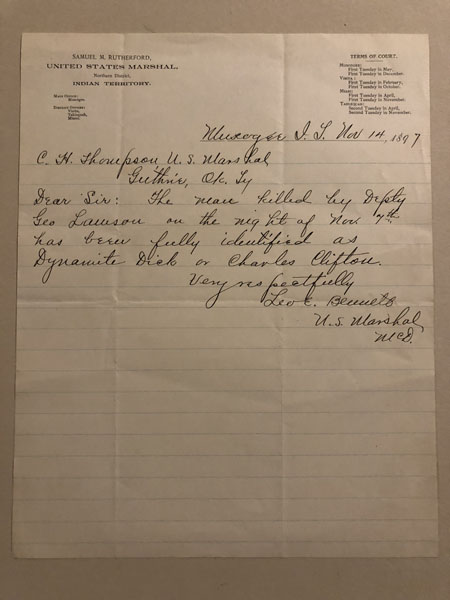 SAMUEL M. RUTHERFORD,
UNITED STATES MARSHAL,
Northern District,
INDIAN TERRITORY.
Main Office:
Muskogee.
Vinita,
Tahlequah,
Miami.
TERMS OF COURT.
First Tuesday in May.
First Tuesday in December.
Vinita:
First Tuesday in February,
First Tuesday in October.
Miami:
First Tuesday in April,
First Tuesday in November.
Second Tuesday in April,
Second Tuesday in November.
Muscogee I. T. Nov 14, 1897
C. H. Thompson U. S. Marshal
Guthrie, Ok. Ty
Dear Sir: The man killed by Depty
Geo Lawson on the night of Nov 7th
has been fully identified as
Dynamite Dick or Charles Clifton.
Very respectfully
Leo E. Bennett
U. S. Marshal
McD.